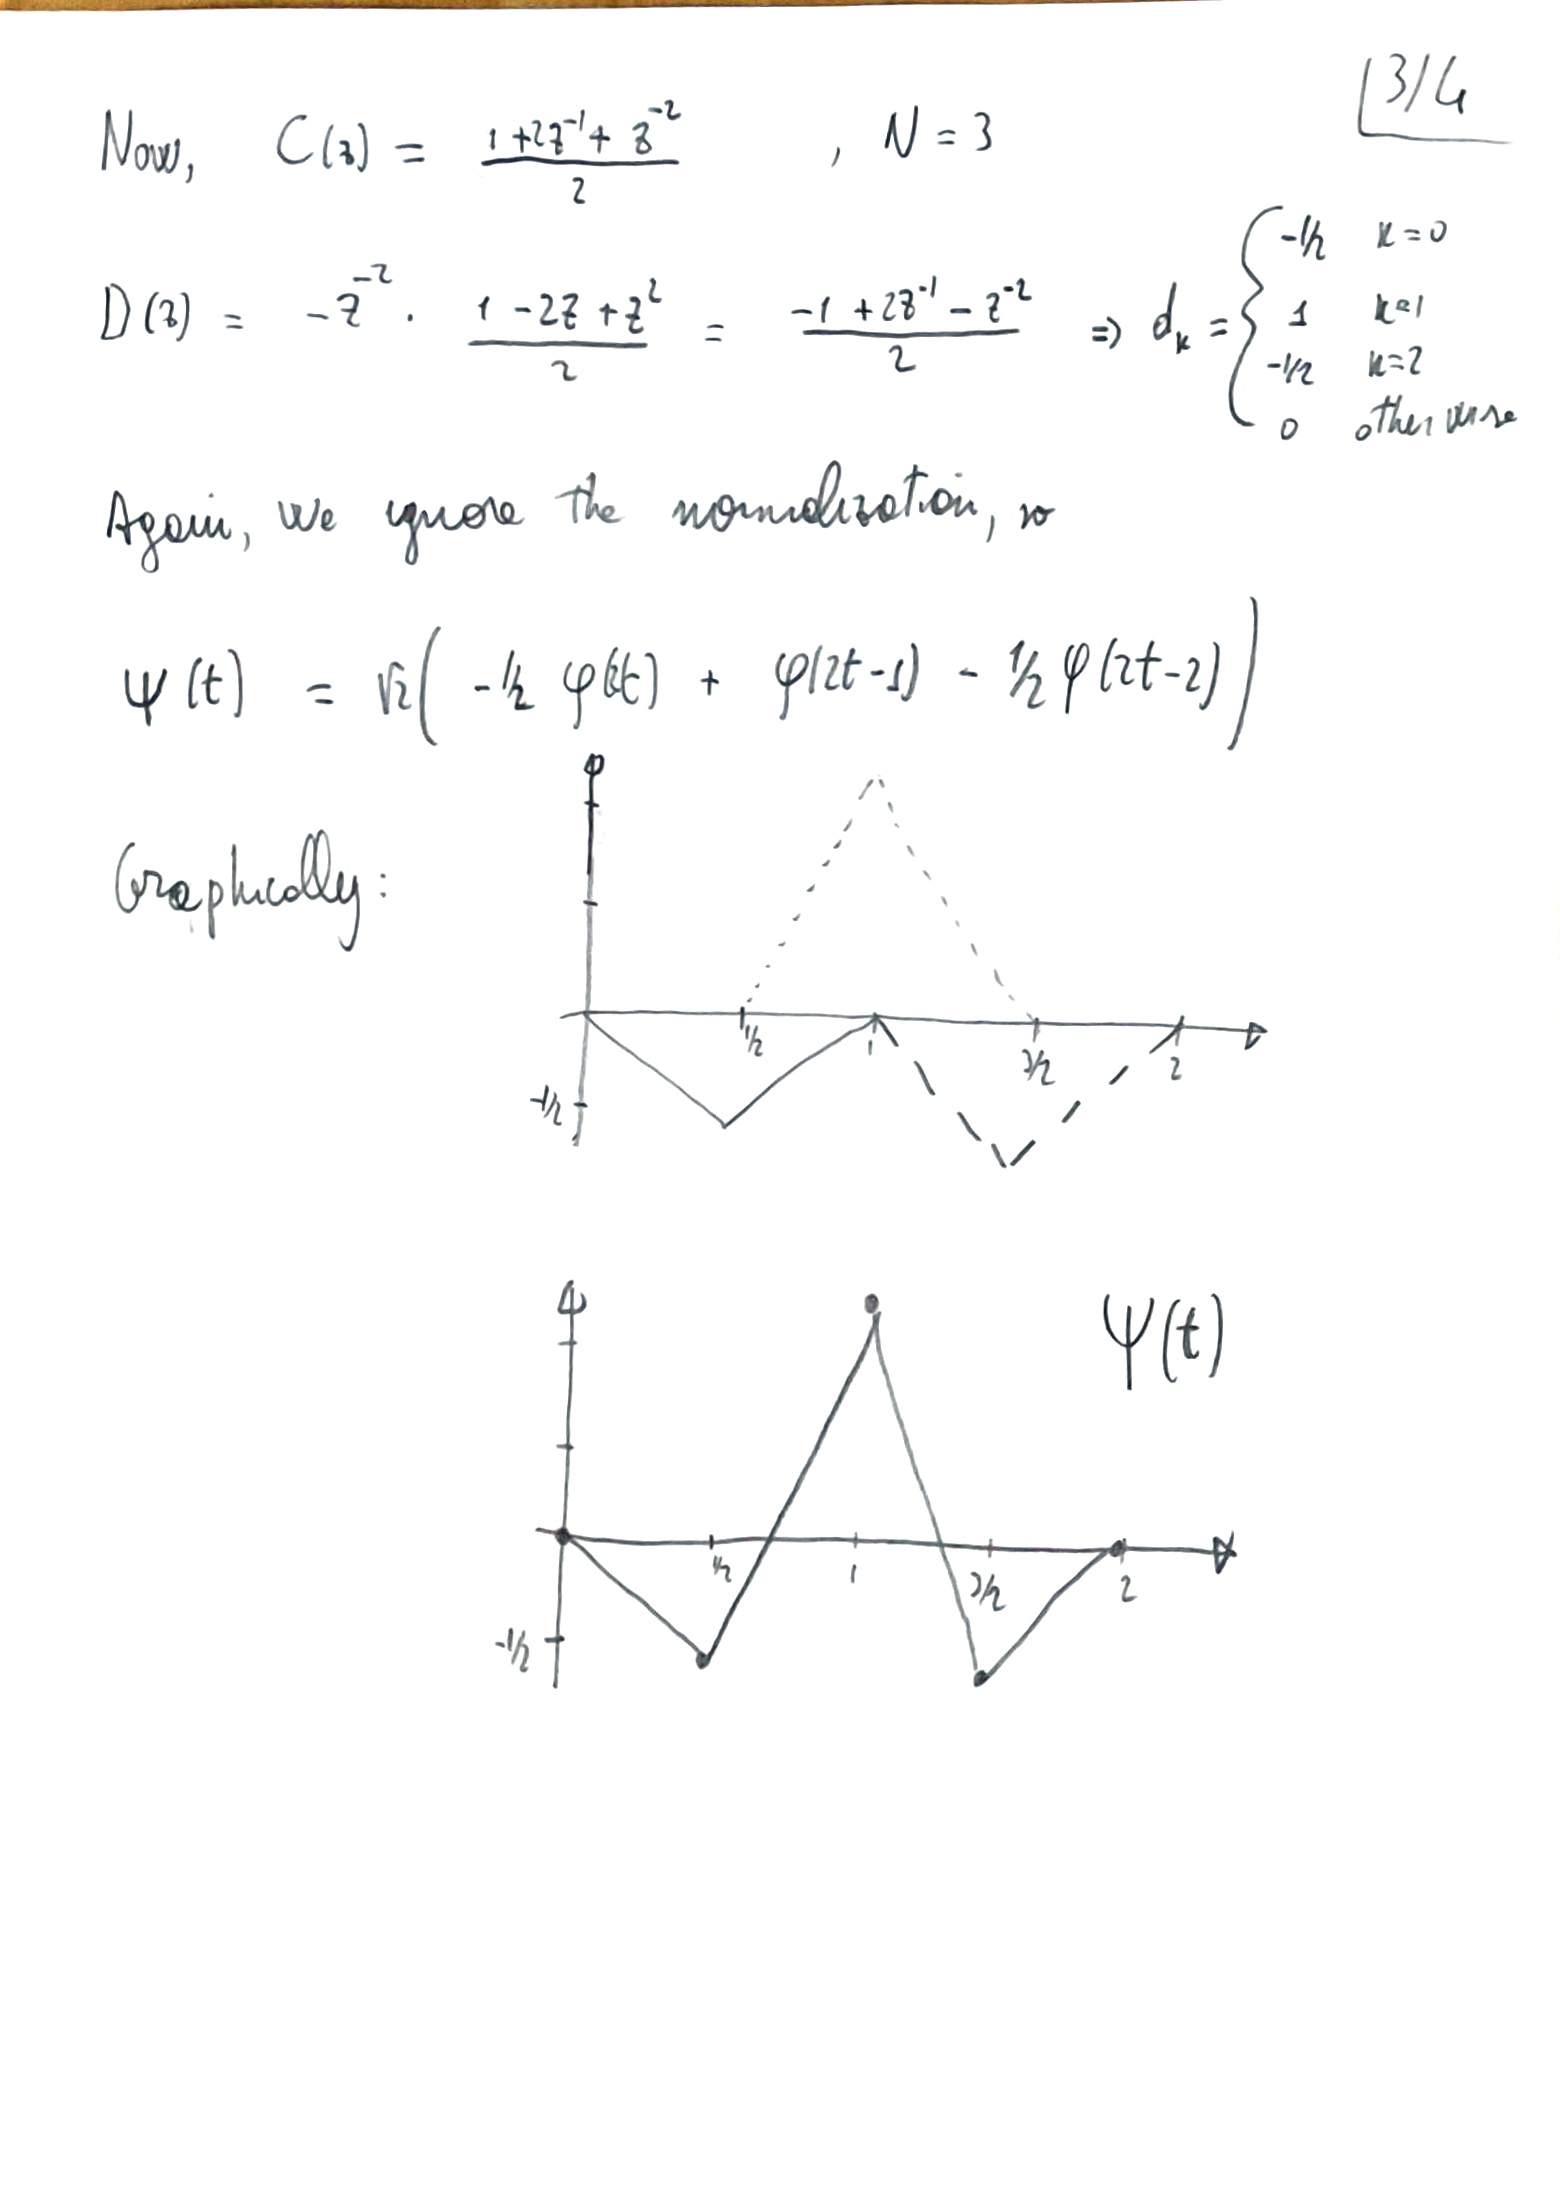 3/4
Now, C(z) = (1+2z⁻¹+z⁻²)/2 , N = 3
D(z) = -z⁻² · (1-2z+z²)/2 = (-1+2z⁻¹-z⁻²)/2 ⇒ dₖ = { -1/2 k=0
1 k=1
-1/2 k=2
0 otherwise
Again, we ignore the normalization, so
ψ(t) = √2( -1/2 φ(2t) + φ(2t-1) - 1/2 φ(2t-2) )
Graphically:
1/2 1 3/2 2
-1/2
ψ(t)
1/2 1 3/2 2
-1/2